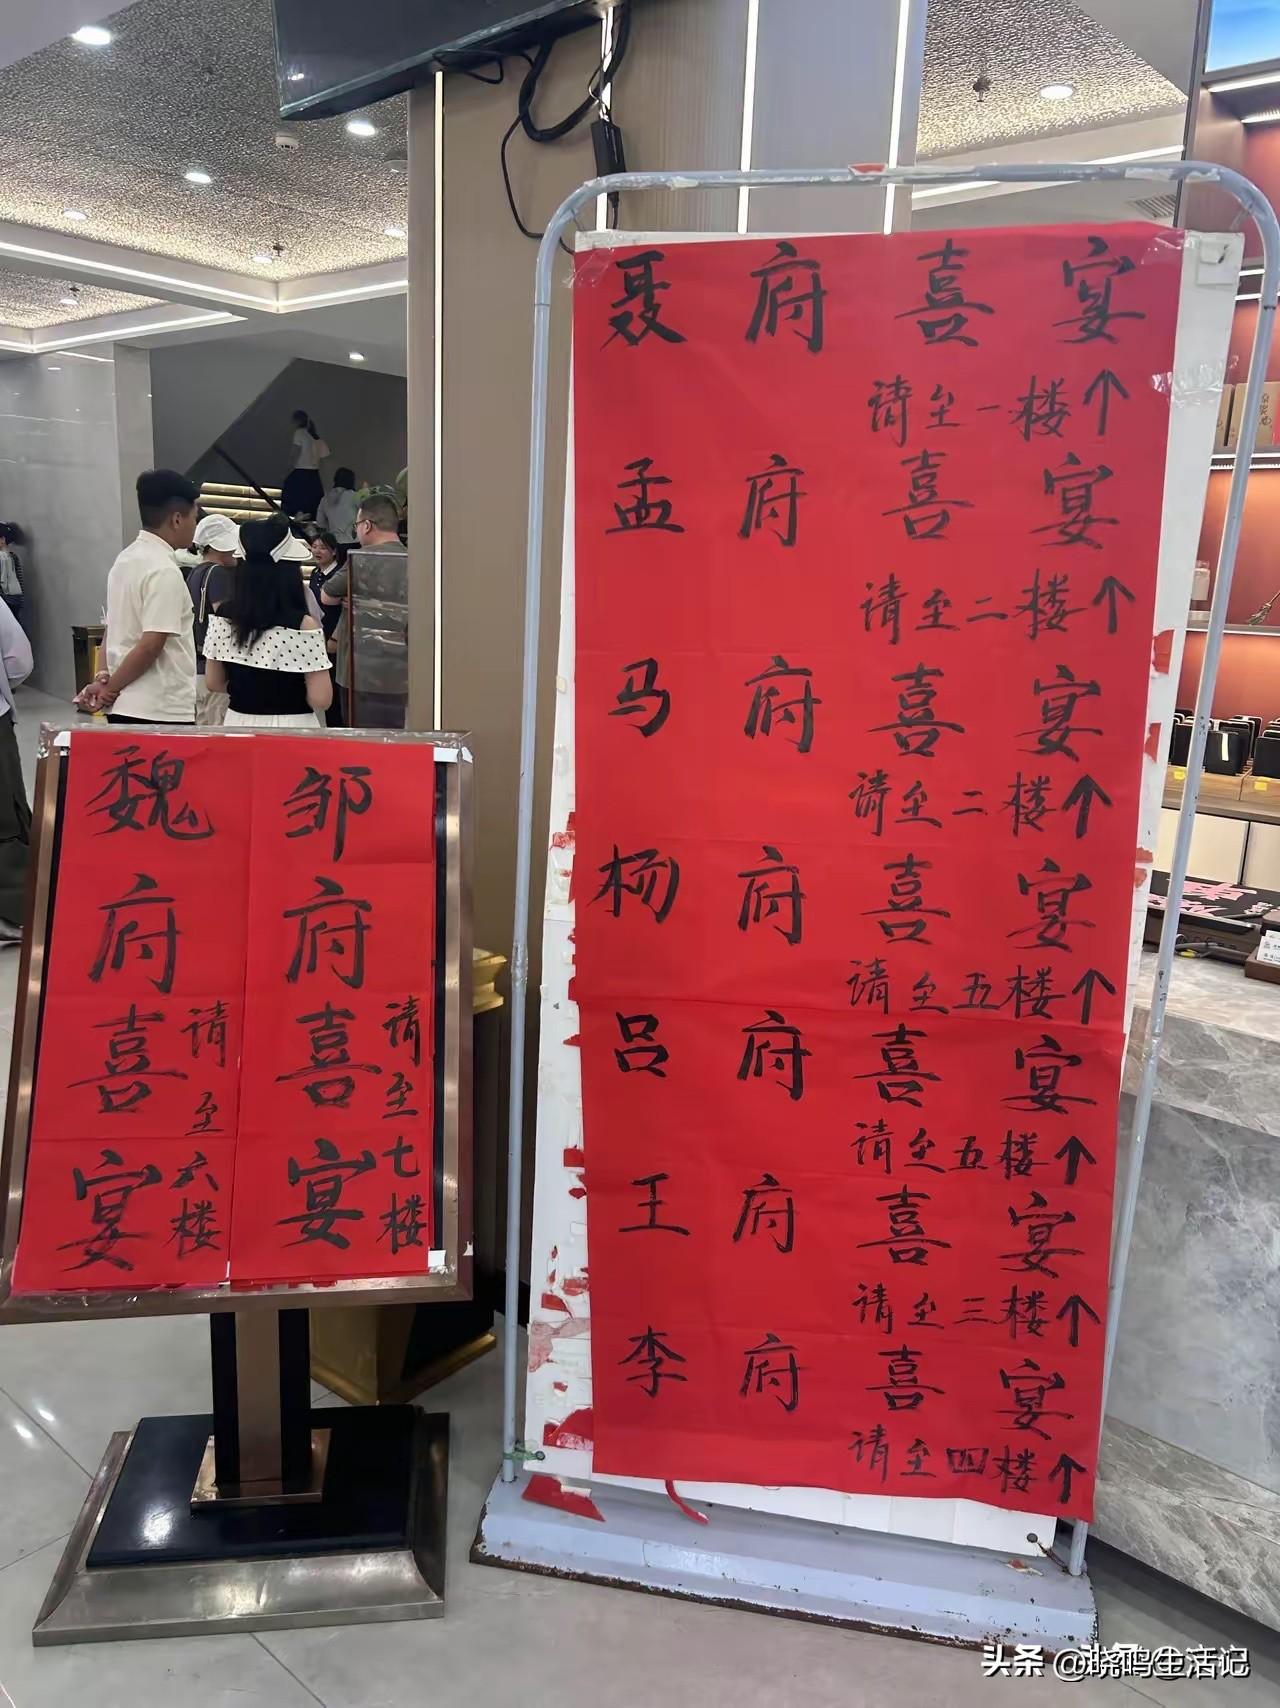 聂府喜宴
请至一楼↑
孟府喜宴
请至二楼↑
马府喜宴
请至二楼↑
杨府喜宴
请至五楼↑
吕府喜宴
请至五楼↑
王府喜宴
请至三楼↑
李府喜宴
请至四楼↑
邹府喜宴
请至七楼
魏府喜宴
请至六楼
头条 @晓鸣生活记